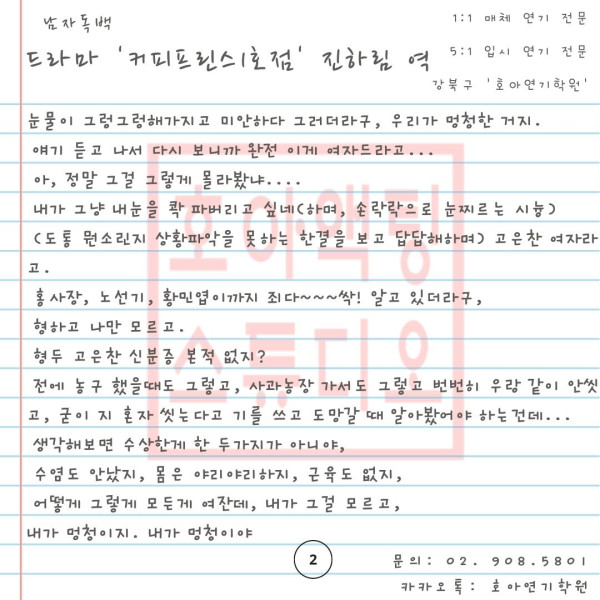 남자독백
1:1 매체 연기 전문
드라마 '커피프린스1호점' 진하림 역
5:1 입시 연기 전문
강북구 '호아연기학원'
눈물이 그렁그렁해가지고 미안하다 그러더라구, 우리가 멍청한 거지.
얘기 듣고 나서 다시 보니까 완전 이게 여자드라고...
아, 정말 그걸 그렇게 몰라봤냐....
내가 그냥 내눈을 콱 파버리고 싶네(하며, 손락락으로 눈찌르는 시늉)
(도통 뭔소린지 상황파악을 못하는 한결을 보고 답답해하며) 고은찬 여자라
고.
홍사장, 노선기, 황민엽이까지 죄다~~~싹! 알고 있더라구,
형하고 나만 모르고.
형두 고은찬 신분증 본적 없지?
전에 농구 했을때도 그렇고, 사과농장 가서도 그렇고 번번히 우랑 같이 안씻
고, 굳이 지 혼자 씻는다고 기를 쓰고 도망갈 때 알아봤어야 하는건데...
생각해보면 수상한게 한 두가지가 아니야,
수염도 안났지, 몸은 야리야리하지, 근육도 없지,
어떻게 그렇게 모든게 여잔데, 내가 그걸 모르고,
내가 멍청이지. 내가 멍청이야
호아·액팅
스튜디오
2
문의: 02. 908.5801
카카오톡: 호아연기학원